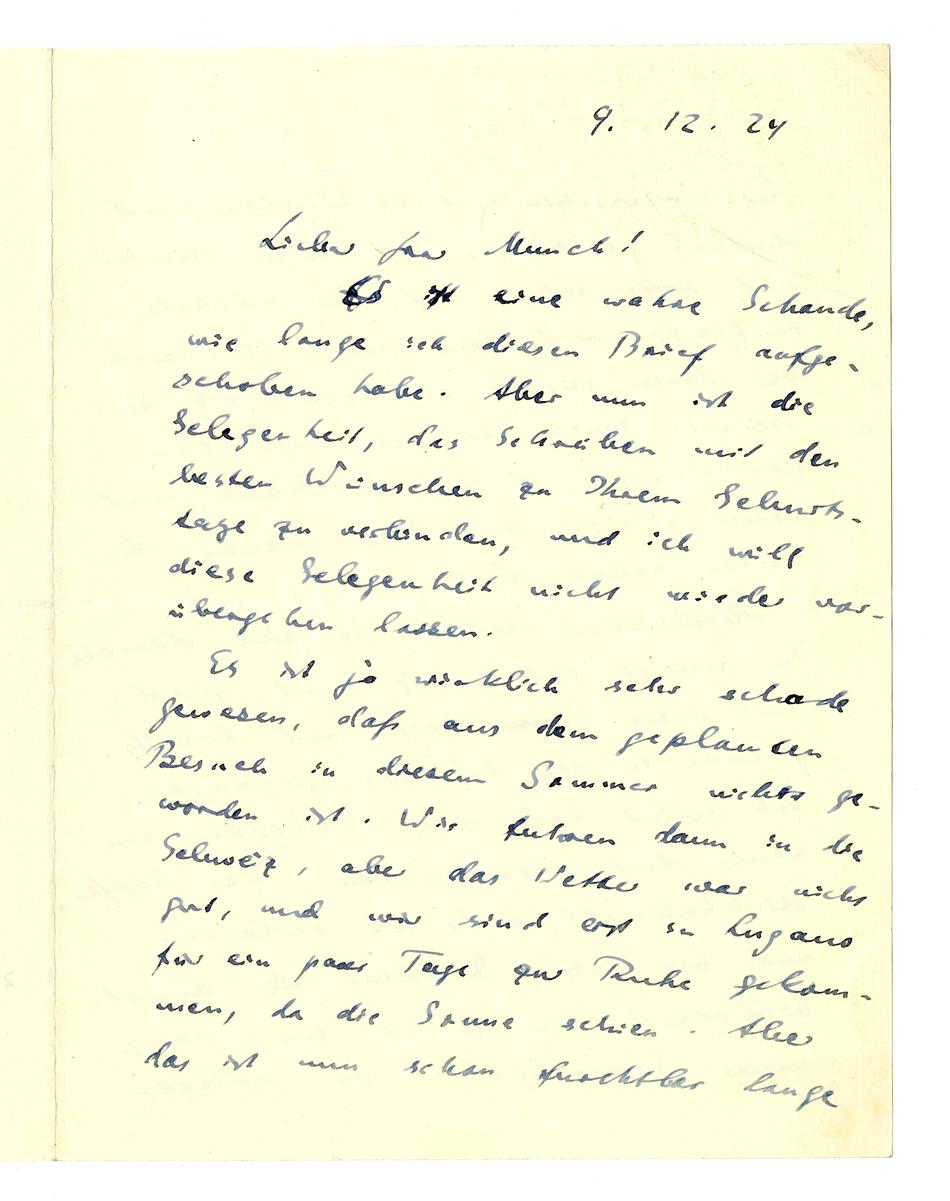 9. 12. 24
Lieber Herr Munch!
Es ist eine wahre Schande,
wie lange ich diesen Brief aufge-
schoben habe. Aber nun ist die
Gelegenheit, das Schreiben mit den
besten Wünschen zu Ihrem Geburts-
tage zu verbinden, und ich will
diese Gelegenheit nicht wieder vor-
übergehen lassen.
Es ist ja wirklich sehr schade
gewesen, daß aus dem geplanten
Besuch in diesem Sommer nichts ge-
worden ist. Wir fuhren dann in die
Schweiz, aber das Wetter war nicht
gut, und wir sind erst in Lugano
für ein paar Tage zur Ruhe gekom-
men, da die Sonne schien. Aber
das ist nun schon furchtbar lange